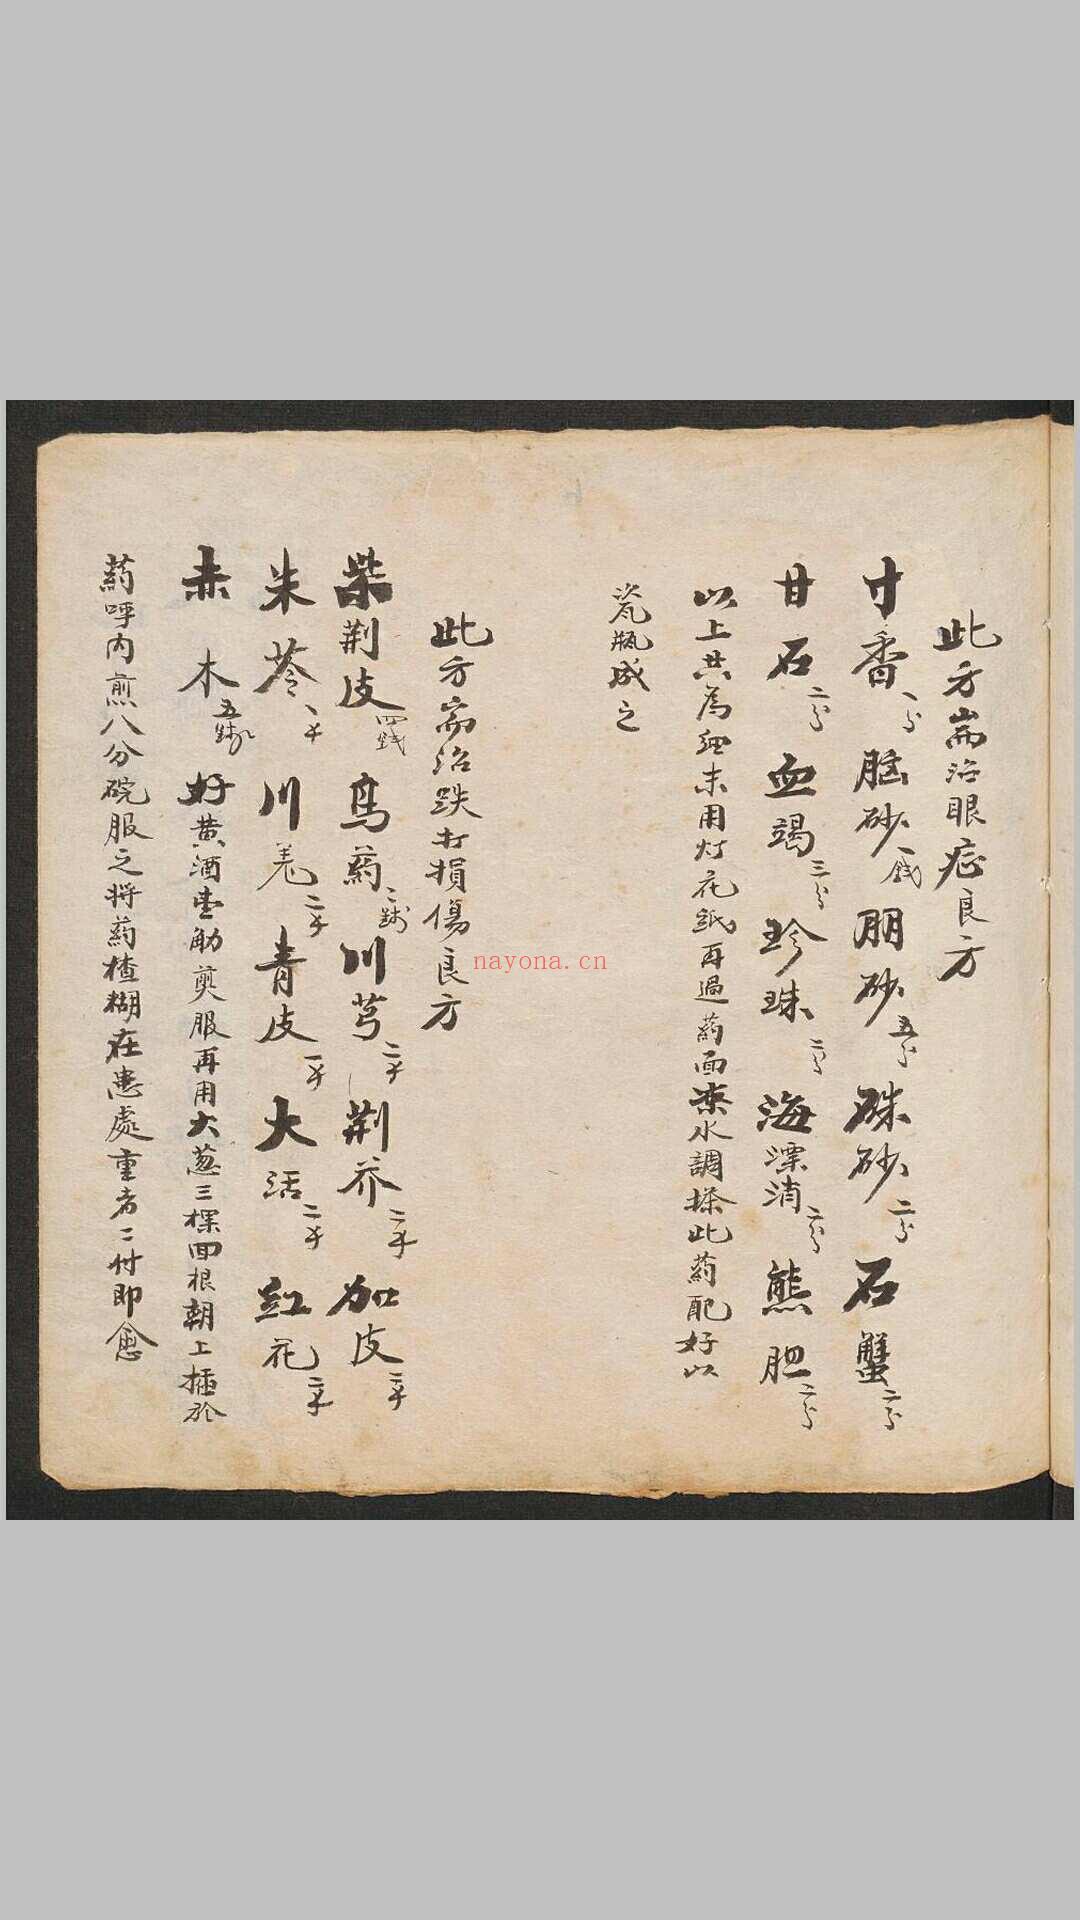 此方耑治眼症良方
寸香一分 脳砂一戋 朋砂五分 硃砂二分 石蟹二分
甘石二分 血竭三分 珍珠二分 海漂消二分 熊胆二分
以上共為細末用灯花紙再過药面 水調搽此药配好以
瓷瓶成之
此方耑治跌打損傷良方
柴荆皮四戋 烏药二 川芎二 荆芥二 加皮二
朱苓 川羌二 青皮 大活二 紅花二
赤木五 好黄酒 觔煎服再用大葱三棵 根朝上插於
药呼内煎八分碗服之将药楂糊在患處重者二付即愈
nayona.cn